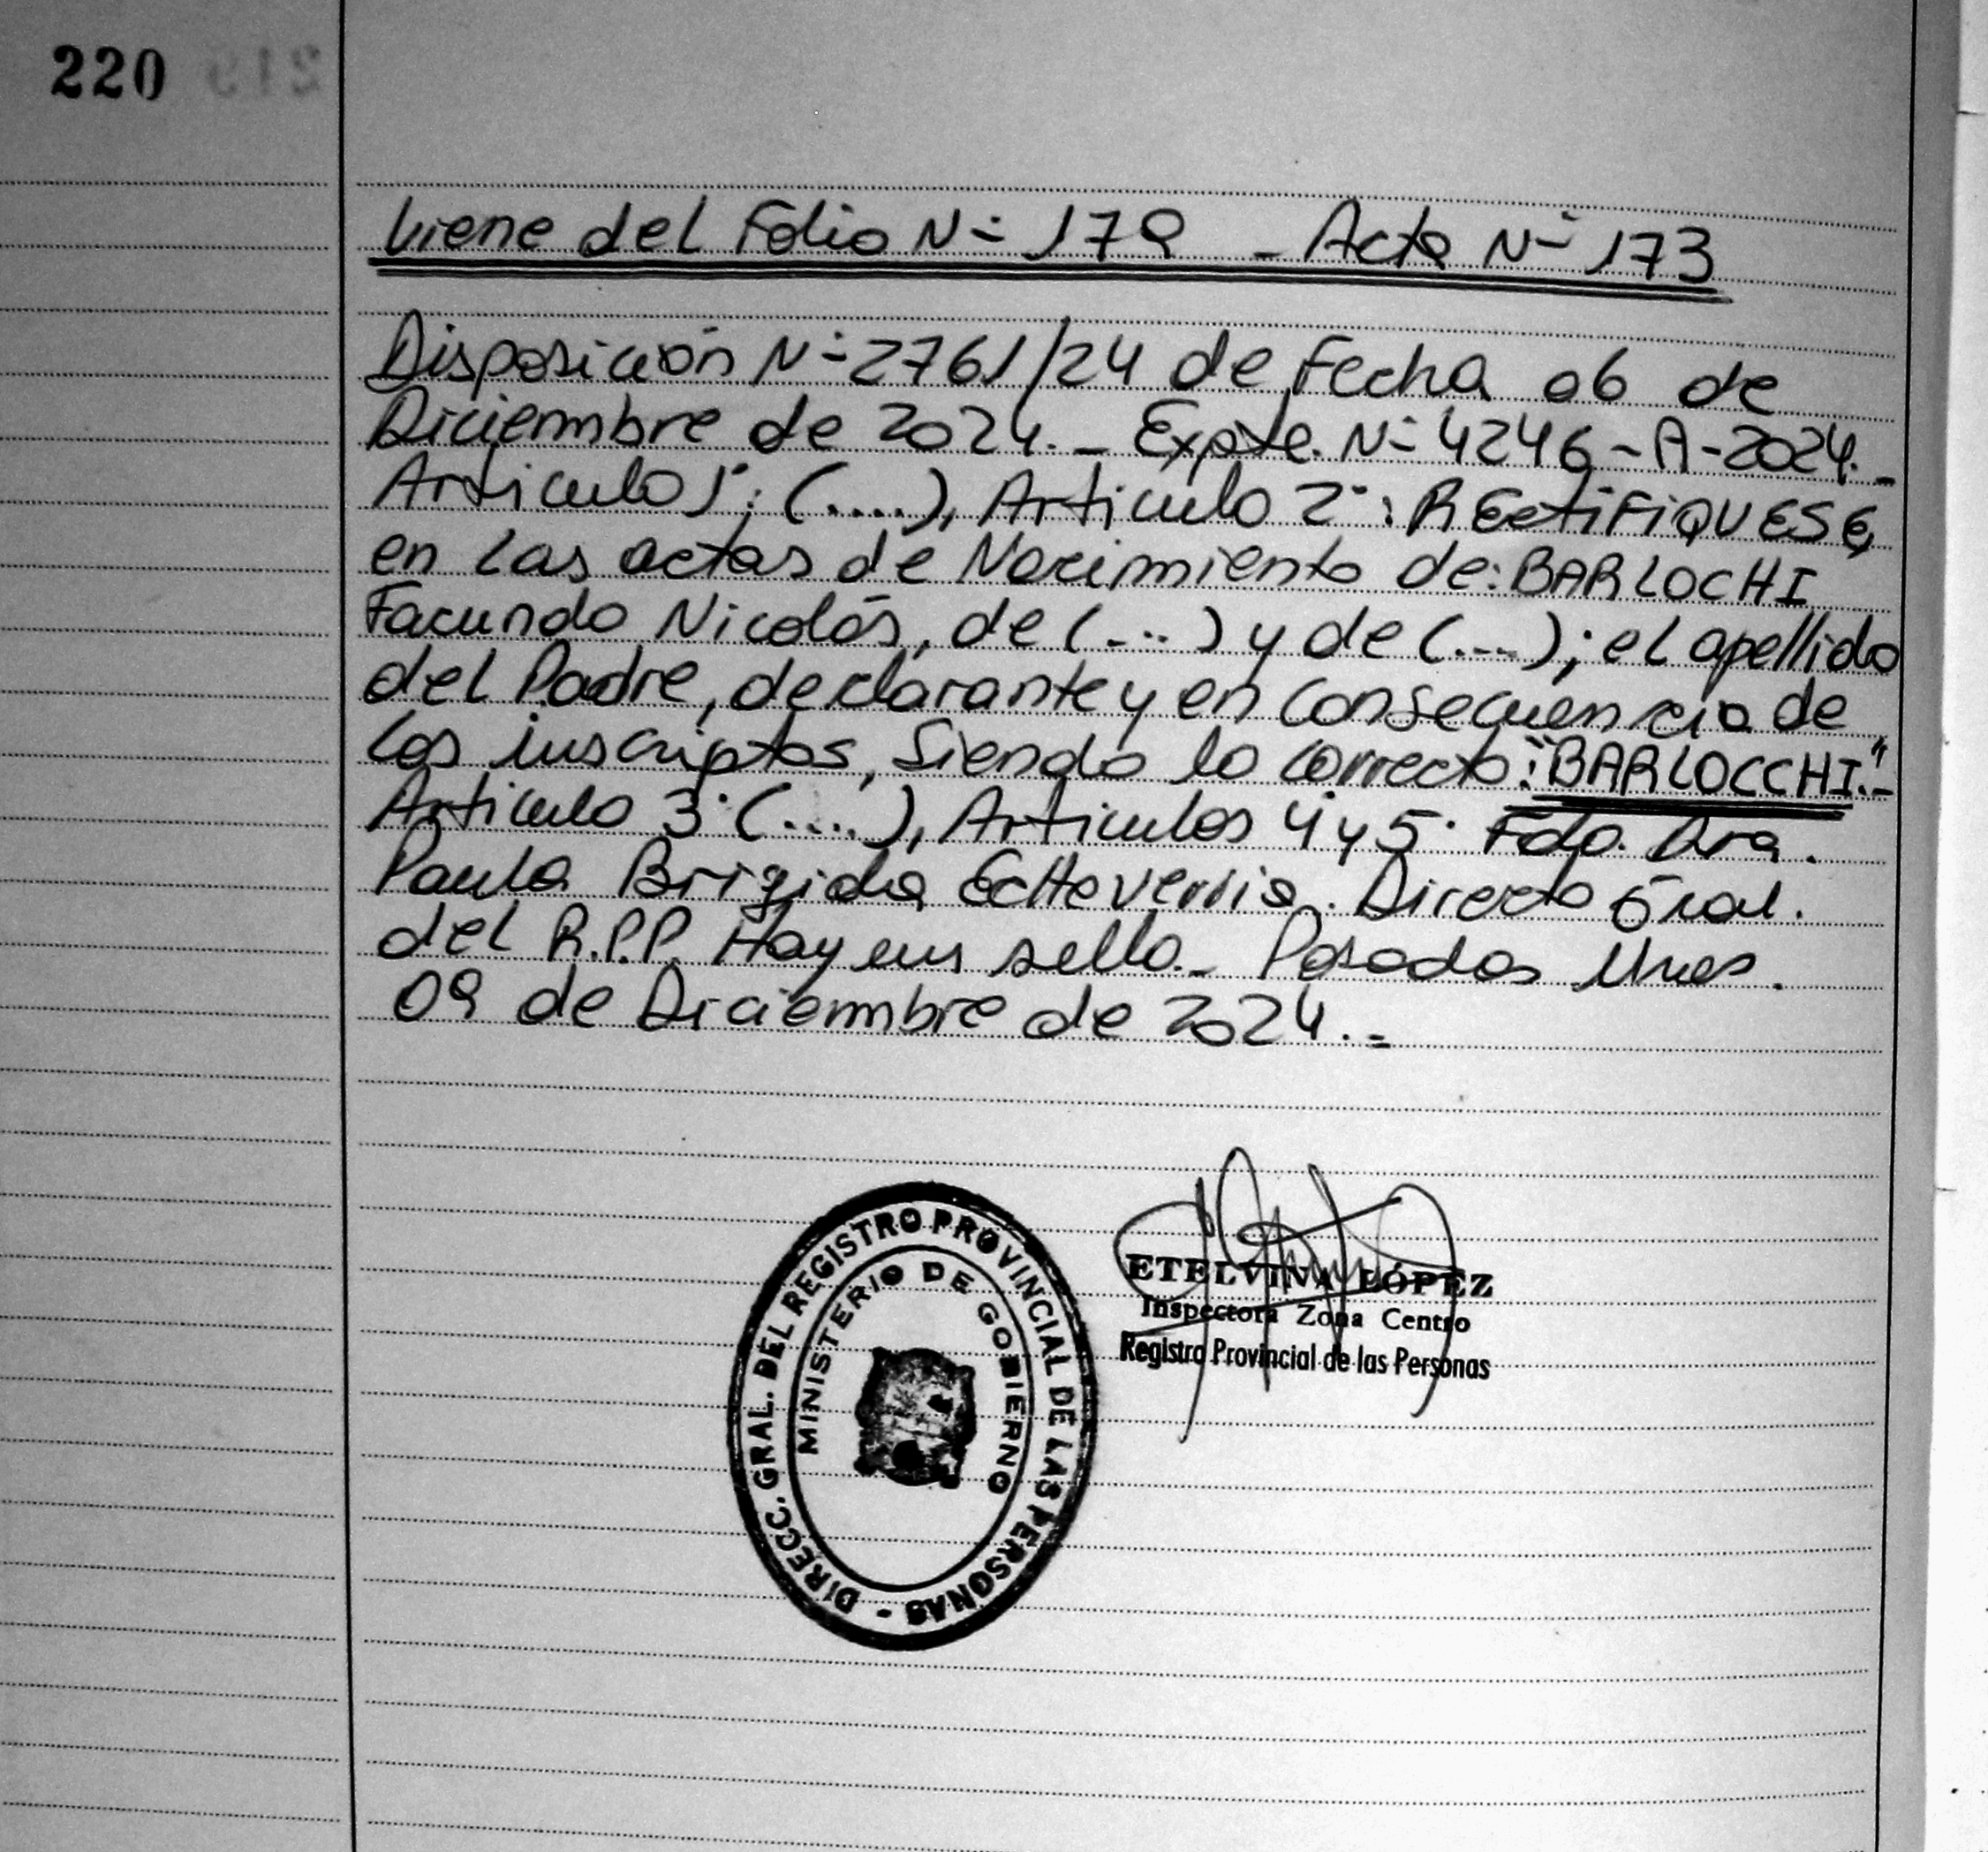 220
Viene del Folio N° 179 - Acta N° 173
Disposición N° 2761/24 de Fecha 06 de
Diciembre de 2024.- Expte. N° 4246-A-2024.-
Artículo 1°: (....), Artículo 2°: RECtiFiQUESE,
en las actas de Nacimiento de: BARLOCHI
Facundo Nicolás, de (...) y de (...); el apellido
del Padre, declarante y en consecuencia de
los inscriptos, siendo lo correcto: "BARLOCCHI".-
Artículo 3° (....), Artículos 4° y 5° Fdo. Dra.
Paula Brigida Echeverria. Directo Gral.
del R.P.P. Hay un sello.- Posadas Mnes.
09 de Diciembre de 2024.=
DIRECC. GRAL. DEL REGISTRO PROVINCIAL DE LAS PERSONAS -
MINISTERIO DE GOBIERNO
ETELVINA LÓPEZ
Inspectora Zona Centro
Registro Provincial de las Personas